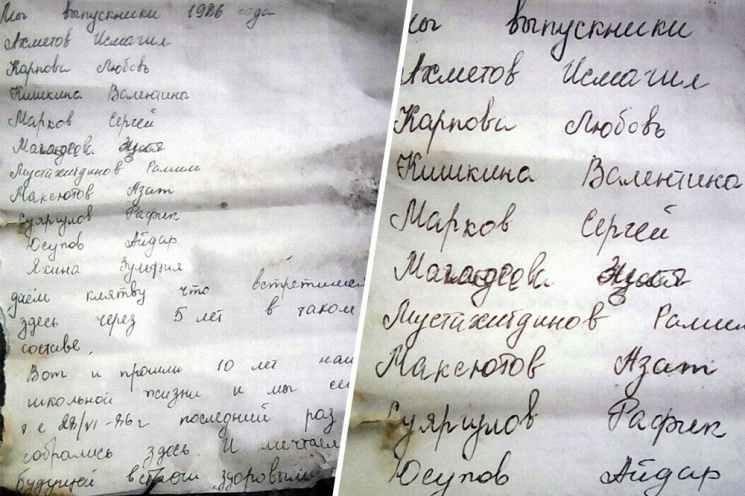 Мы выпускники 1986 года
Ахметов Исмагил
Карпова Любовь
Кишкина Валентина
Марков Сергей
Магадеева
Мустахитдинов Рамиль
Максютов Азат
Суяргулов Рафик
Юсупов Айдар
Яхина Зумфия
даём клятву что встретимся
здесь через 5 лет в таком
составе,
Вот и прошли 10 лет наш
школьной жизни и мы се
т.е 28/VI-86г последний раз
собрались здесь. И мечтаем
будущей встречи здоровыми
ы выпускники
Ахметов Исмагил
Карпова Любовь
Кишкина Валентина
Марков Сергей
Магадеева
Мустахитдинов Рамил
Максютов Азат
Суяргулов Рафик
Юсупов Айдар